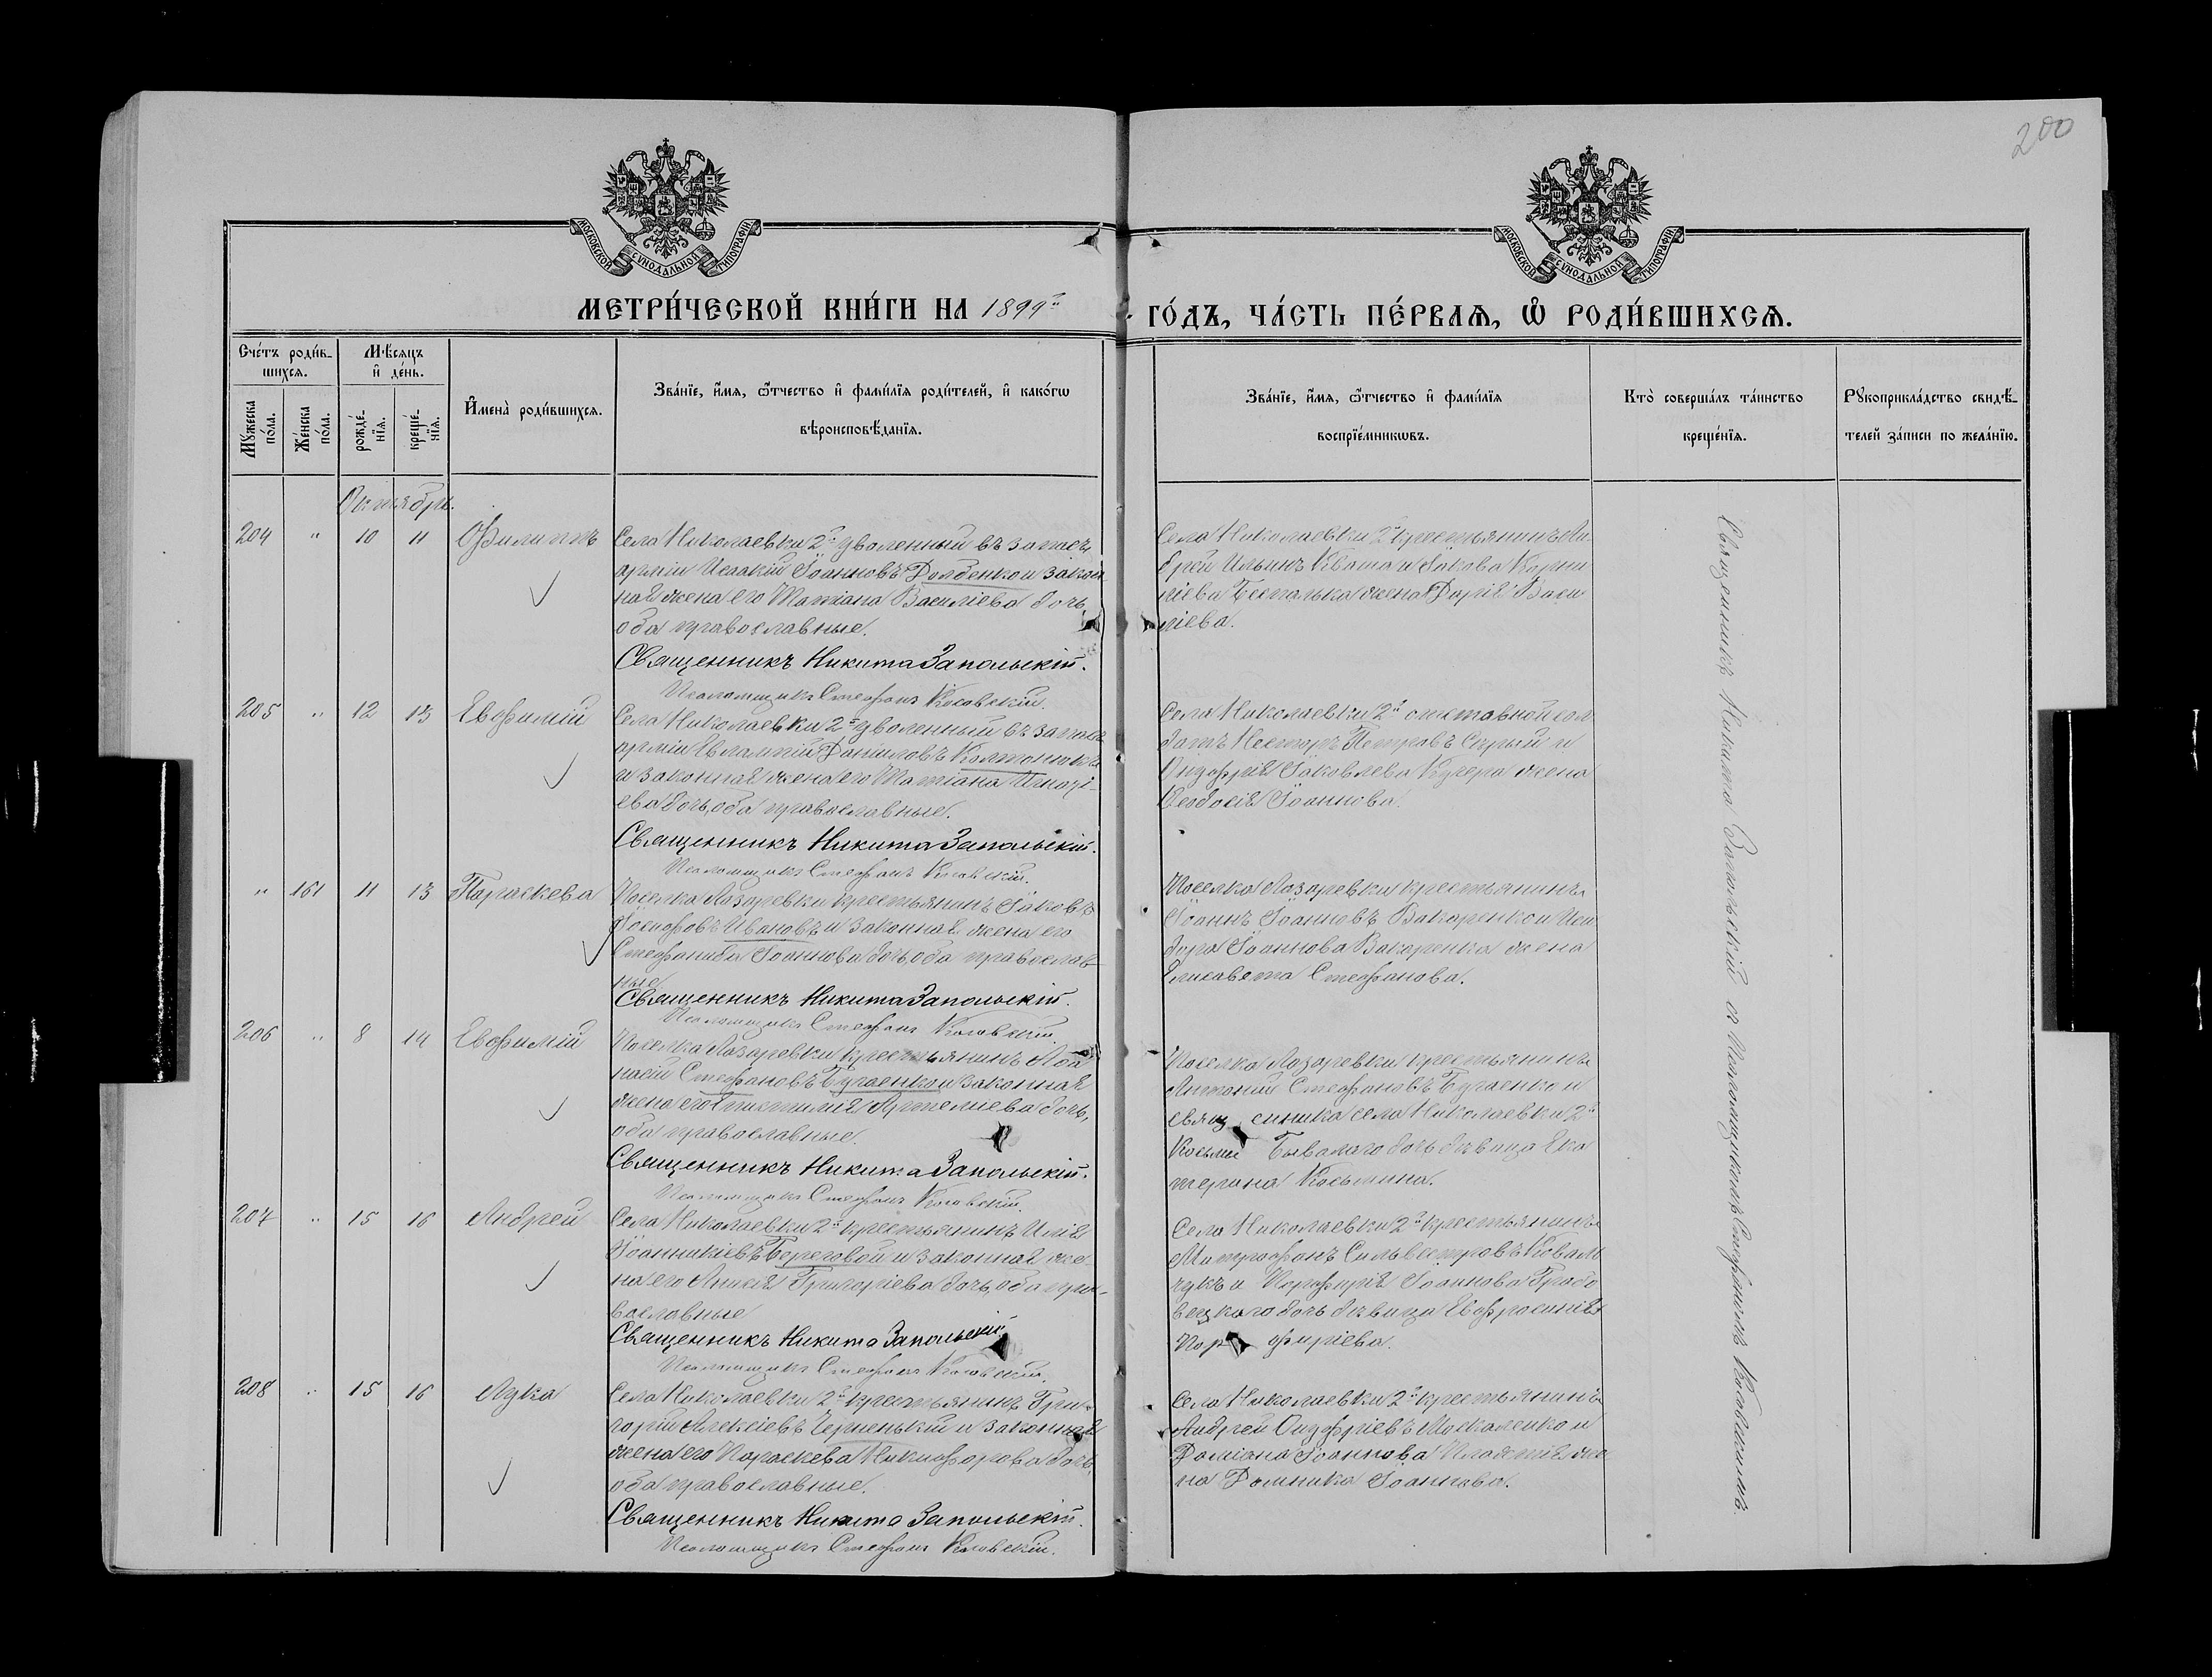 200
МОСКОВСКОЙ СѴНОДАЛЬНОЙ ТИПОГРАФІИ
МОСКОВСКОЙ СѴНОДАЛЬНОЙ ТИПОГРАФІИ
МЕТРИ́ЧЕСКОЙ КНИ́ГИ НА 1899й
ГО́ДЪ, ЧА́СТЬ ПЕ́РВАѦ, Ѽ РОДИ́ВШИХСѦ.
Счéтъ роди́в-
шихсѧ.
Мѣ́сѧцъ
и҆ дéнь.
Мꙋ́жеска
по́ла.
Же́нска
по́ла.
рожде́-
нїѧ.
креще́-
нїѧ.
И҆мена̀ роди́вшихсѧ.
Зва́нїе, и҆́мѧ, ѻ҆́тчество и҆ фами́лїѧ роди́телей, и҆ како́гѡ
вѣроисповѣ́данїѧ.
Зва́нїе, и҆́мѧ, ѻ҆́тчество и҆ фами́лїѧ
воспрїе́мникѡвъ.
Кто̀ соверша́лъ та́инство
креще́нїѧ.
Рꙋкоприкла́дство свидѣ́-
телей за́писи по жела́нїю.
Октябрь.
204 " 10 11 Филиппъ
Села Николаевки 2й уволенный въ запасъ
арміи Исаакій Іоанновъ Долденко и закон-
ная жена его Татіана Василіева дочь,
оба православные.
Священникъ Никита Запольскій.
Псаломщикъ Стефанъ Косовскій.
Села Николаевки 2й крестьянинъ Ан-
дрей Ильинъ Кваша и Іакова Корни-
ліева Безпалька жена Дарія Васи-
ліева.
205 " 12 13 Евфимій
Села Николаевки 2й уволенный въ запасъ
арміи Евлампій Даніиловъ Колтонюкъ
и законная жена его Татіана Игнаті-
ева дочь, оба православные.
Священникъ Никита Запольскій.
Псаломщикъ Стефанъ Косовскій.
Села Николаевки 2й отставной сол-
датъ Несторъ Петровъ Сѣрый и
Онуфрія Іаковлева Кучера жена
Ѳеодосія Іоаннова.
" 161 11 13 Параскева
Поселка Лазаревки крестьянинъ Іаковъ
Іосифовъ Ивановъ и законная жена его
Стефанида Іоаннова дочь, оба православ-
ные
Священникъ Никита Запольскій.
Псаломщикъ Стефанъ Косовскій.
Поселка Лазаревки крестьянинъ
Іоаннъ Іоанновъ Вакаренко и Иси-
дора Іоаннова Вакаренка жена
Елисавета Стефанова.
206 " 8 14 Евфимій
Поселка Лазаревки крестьянинъ Аѳа-
насій Стефановъ Бугаенко и законная
жена его Артеміева дочь,
оба православные.
Священникъ Никита Запольскій.
Псаломщикъ Стефанъ Косовскій.
Поселка Лазаревки крестьянинъ
Антоній Стефановъ Бугаенко и
священника села Николаевки 2й
Косьмы Бывалаго дочь дѣвица Ека-
терина Косьмина.
207 " 15 16 Андрей
Села Николаевки 2й крестьянинъ Илія
Іоанникіевъ Береговой и законная же-
на его Анисія Григоріева дочь, оба пра-
вославные
Священникъ Никита Запольскій.
Псаломщикъ Стефанъ Косовскій.
Села Николаевки 2й крестьянинъ
Митрофанъ Сильвестровъ Коваль-
чукъ и Порфирія Іоаннова Грабо-
вецкаго дочь дѣвица Евфросинія
Порфиріева.
208 " 15 16 Лука
Села Николаевки 2й крестьянинъ Гри-
горій Алексіевъ Черненькій и законная
жена его Параскева Никифорова дочь,
оба православные.
Священникъ Никита Запольскій.
Псаломщикъ Стефанъ Косовскій.
Села Николаевки 2й крестьянинъ
Андрей Онуфріевъ Москаленко и
Даміана Іоаннова же-
на Домника Іоаннова.
Священникъ Никита Запольскій съ Псаломщикомъ Стефаномъ Косовскимъ.